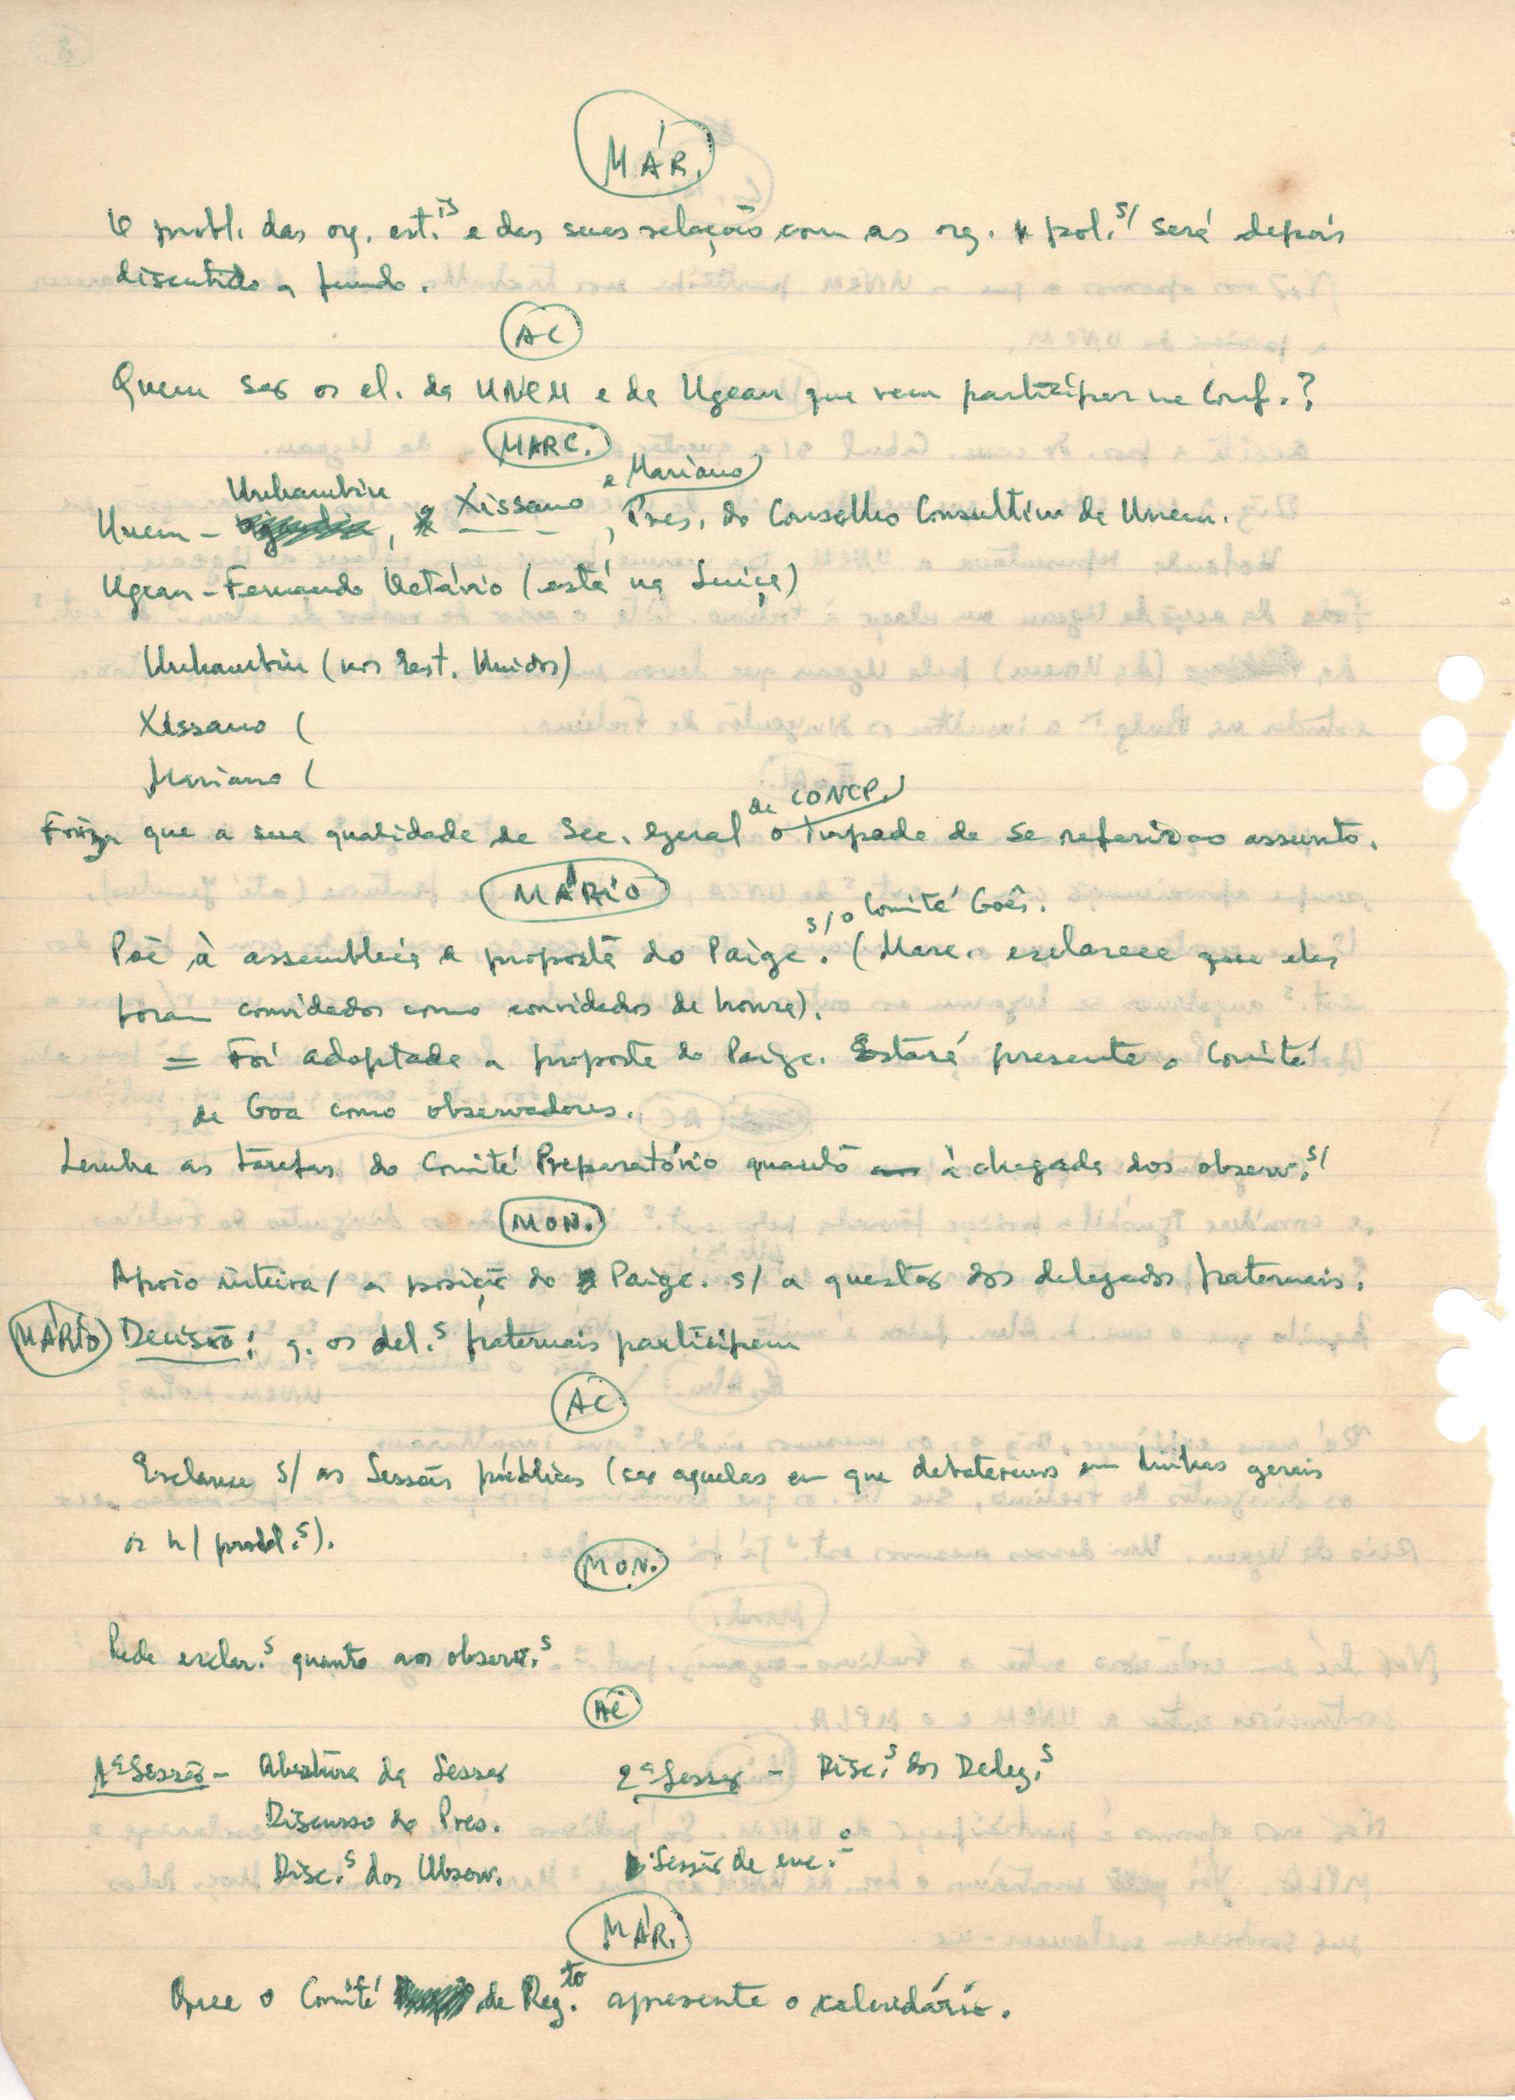 MÁR.
O probl. das org. est.is e das suas relações com as org. pol.s/ será depois
discutido a fundo.
AC
Quem são os el. da UNEM e da Ugean que vem participar na Conf.?
MARC.
Unem - Unhambiu, Xissano e Mariano, Pres. do Conselho Consultivo da Unem.
Ugean - Fernando Octávio (está na Suiça)
Unhambiu (nos Est. Unidos)
Xissano (
Mariano (
que a sua qualidade de Sec. Geral da CONCP. o impede de se referir ao assunto.
MÁRIO
Põe à assembleia a proposta do Paigc. s/ o Comité Goês. (Marc. esclarece que eles
foram convidados como convidados de honra).
= Foi adoptada a proposta do Paigc. Estará presente o Comité
de Goa como observadores.
Lembra as tarefas do Comité Preparatório quanto à chegada dos observ.s/
MON.
Apoio inteira/ a posição do Paigc. s/ a questão dos delegados fraternais.
MÁRIO Decisão: q. os del.s fraternais participem
AC
Esclarece s/ as Sessões públicas (são aquelas em que debateremos em linhas gerais
os n/ probl.s).
MON.
Pede esclar.s quanto aos observ.s
AC
1ª Sessão - Abertura da Sessão
Discurso do Pres.
Disc.s dos Observ.
2ª Sessão - Disc.s dos Deleg.s
Sessão de enc.o
MÁR.
Que o Comité de Reg.to apresente o calendário.